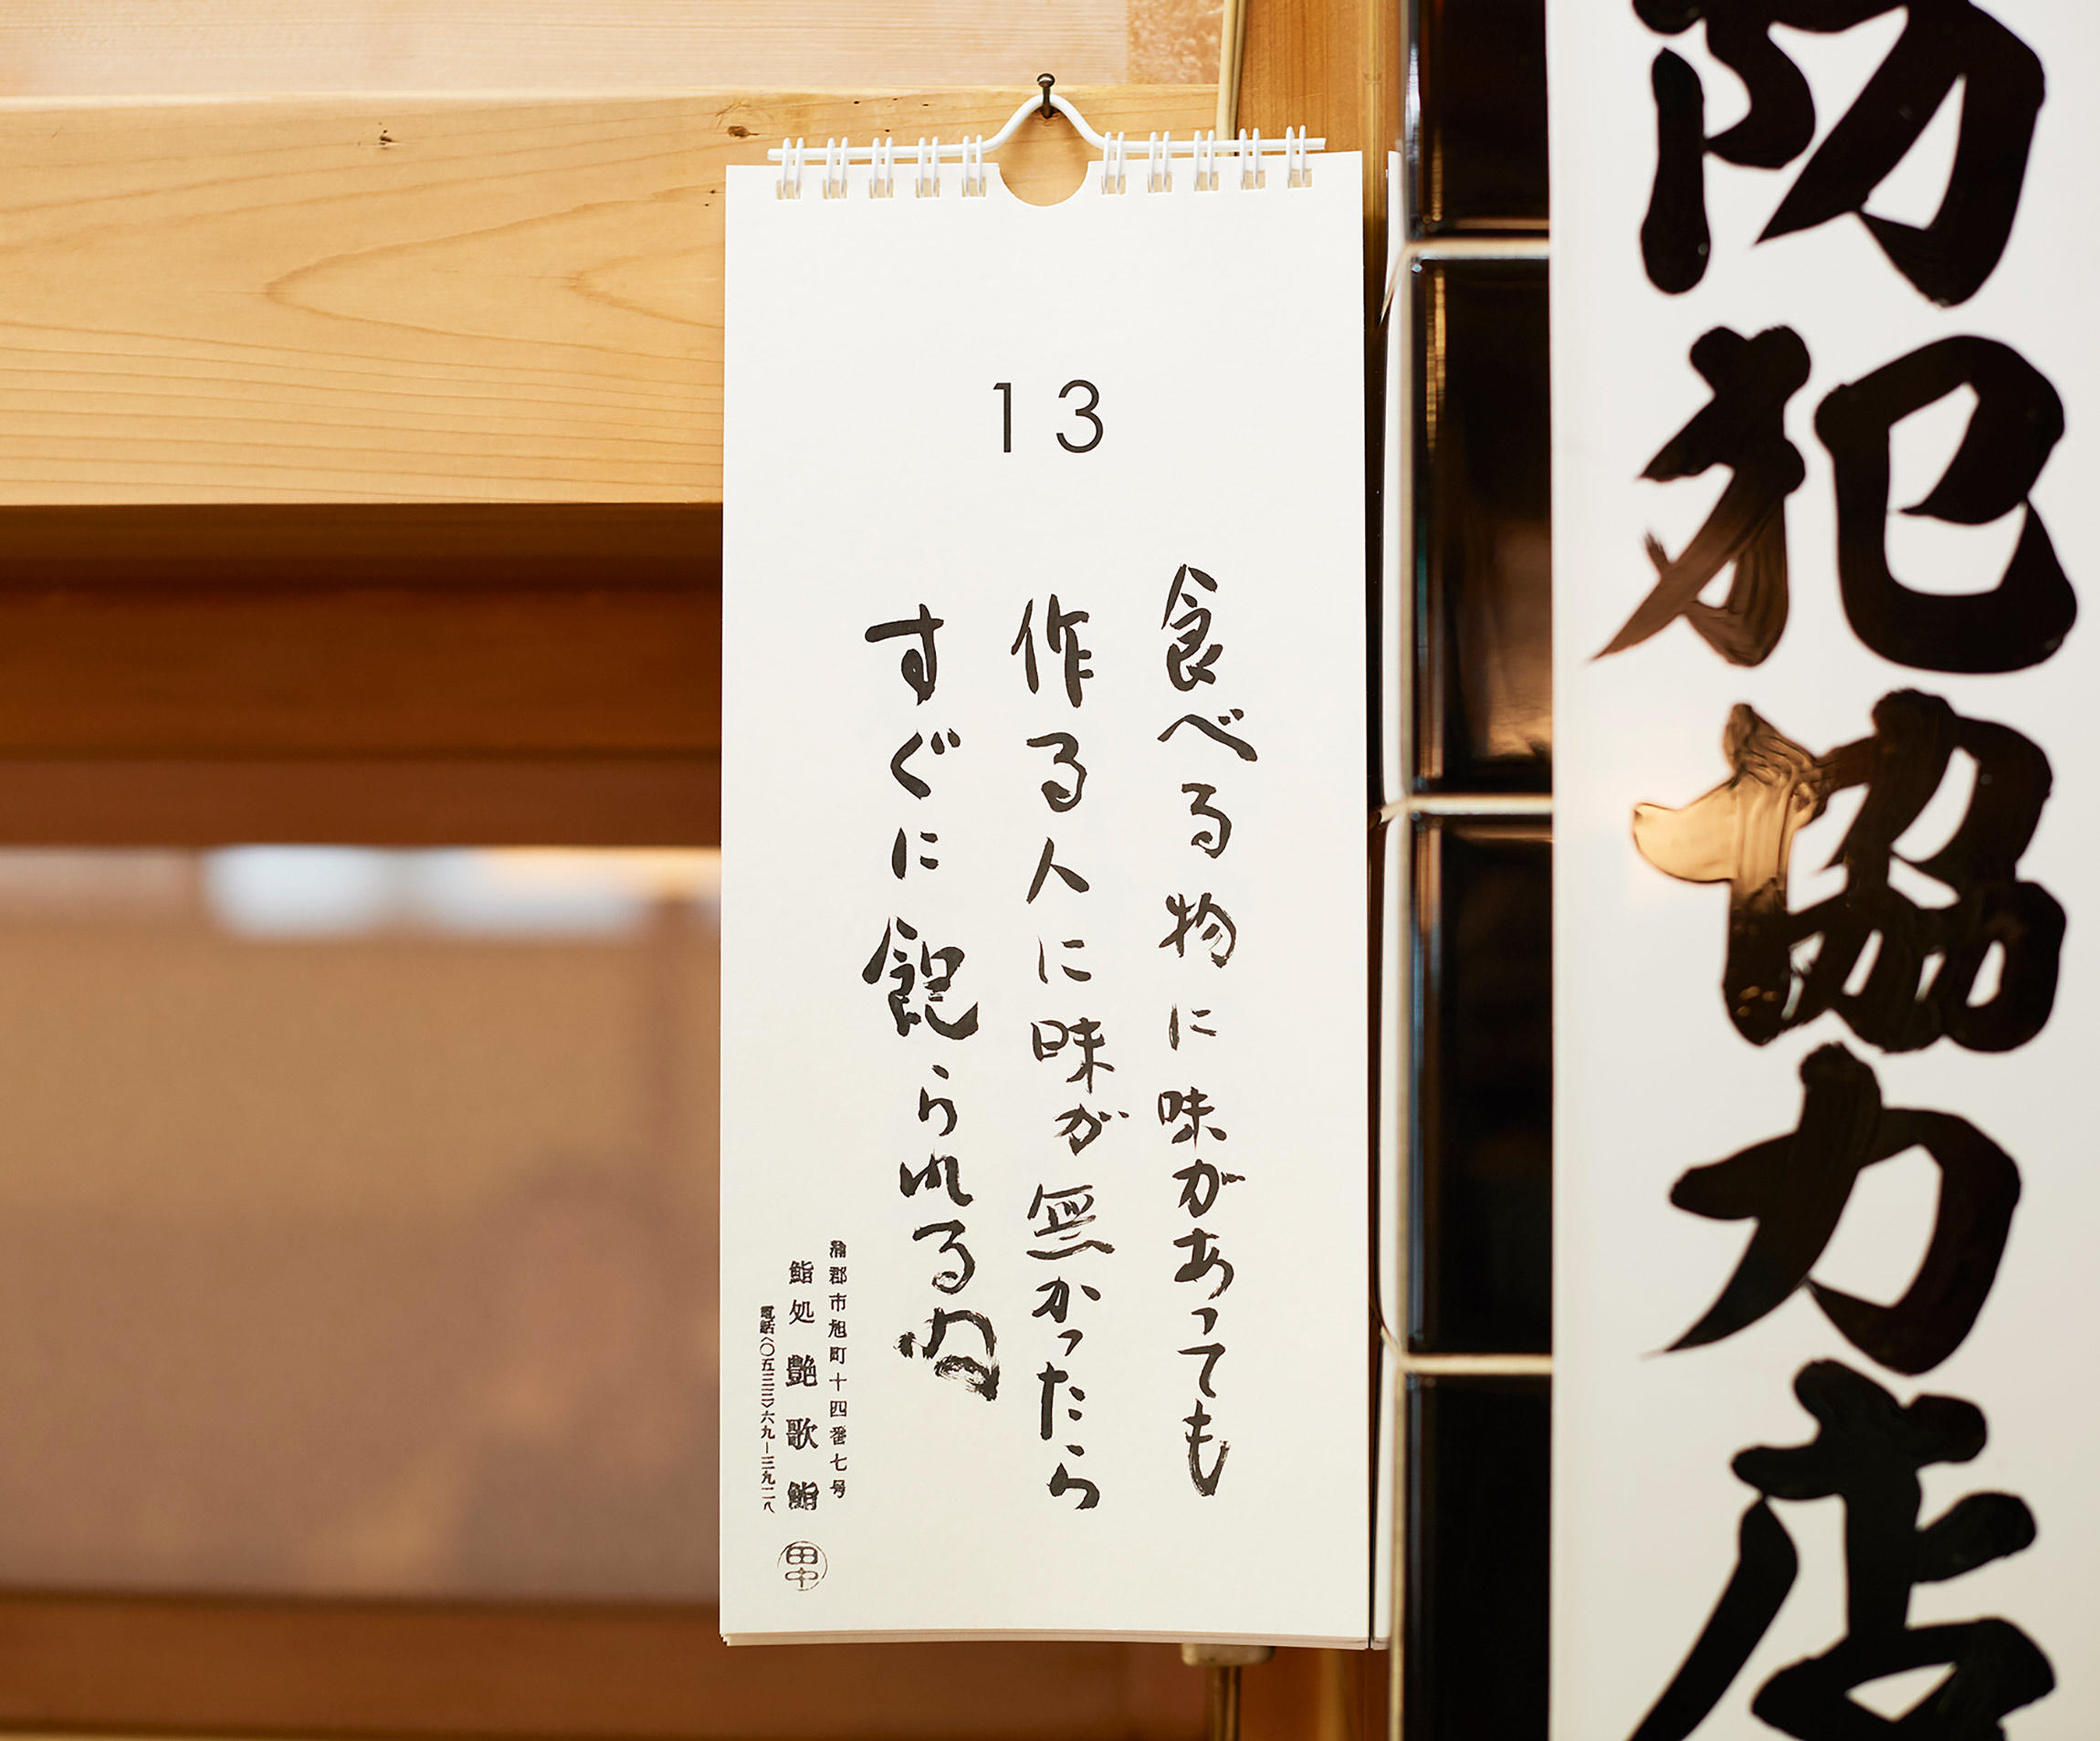 防犯協力店
13
食べる物に味があっても
作る人に味が無かったら
すぐに飽られる内
蒲郡市旭町十四番七号
鮨処 艶歌鮨
電話(〇五三三)六九ー三九二八
田中